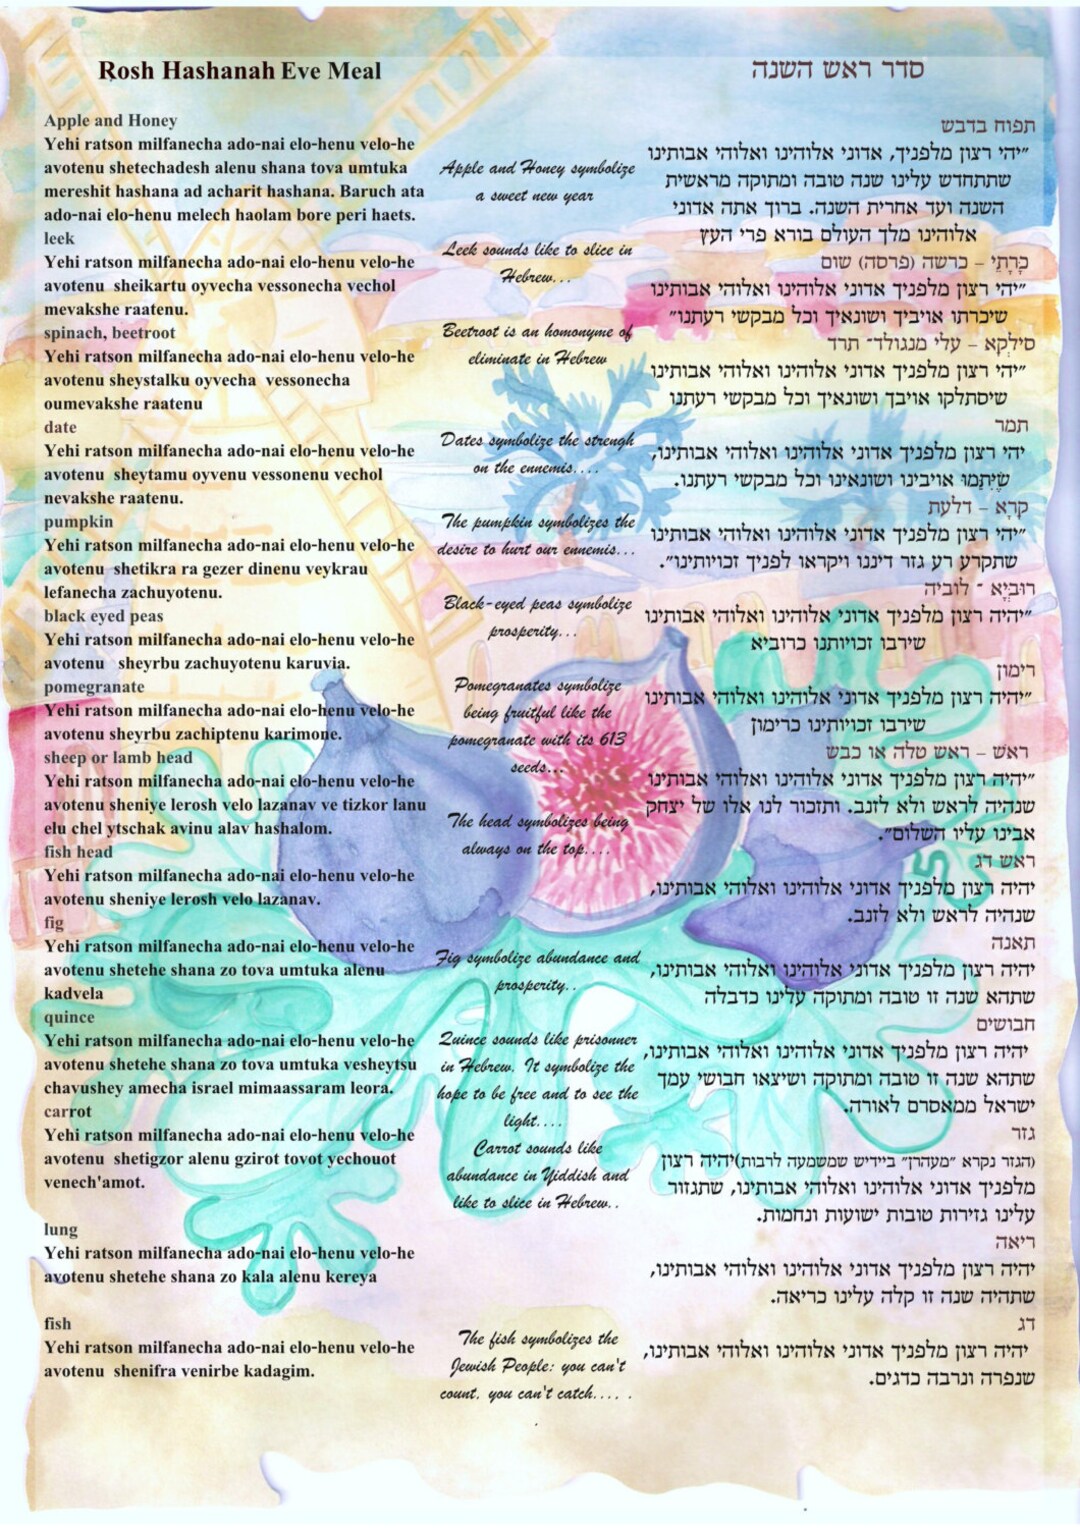 Rosh Hashanah Eve Meal
Apple and Honey
Yehi ratson milfanecha ado-nai elo-henu velo-he
avotenu shetechadesh alenu shana tova umtuka
mereshit hashana ad acharit hashana. Baruch ata
ado-nai elo-henu melech haolam bore peri haets.
leek
Yehi ratson milfanecha ado-nai elo-henu velo-he
avotenu sheikartu oyvecha vessonecha vechol
mevakshe raatenu.
spinach, beetroot
Yehi ratson milfanecha ado-nai elo-henu velo-he
avotenu sheystalku oyvecha vessonecha
oumevakshe raatenu
date
Yehi ratson milfanecha ado-nai elo-henu velo-he
avotenu sheytamu oyvenu vessonenu vechol
nevakshe raatenu.
pumpkin
Yehi ratson milfanecha ado-nai elo-henu velo-he
avotenu shetikra ra gezer dinenu veykrau
lefanecha zachuyotenu.
black eyed peas
Yehi ratson milfanecha ado-nai elo-henu velo-he
avotenu sheyrbu zachuyotenu karuvia.
pomegranate
Yehi ratson milfanecha ado-nai elo-henu velo-he
avotenu sheyrbu zachiptenu karimone.
sheep or lamb head
Yehi ratson milfanecha ado-nai elo-henu velo-he
avotenu sheniye lerosh velo lazanav ve tizkor lanu
elu chel ytschak avinu alav hashalom.
fish head
Yehi ratson milfanecha ado-nai elo-henu velo-he
avotenu sheniye lerosh velo lazanav.
fig
Yehi ratson milfanecha ado-nai elo-henu velo-he
avotenu shetehe shana zo tova umtuka alenu
kadvela
quince
Yehi ratson milfanecha ado-nai elo-henu velo-he
avotenu shetehe shana zo tova umtuka vesheytsu
chavushey amecha israel mimaassaram leora.
carrot
Yehi ratson milfanecha ado-nai elo-henu velo-he
avotenu shetigzor alenu gzirot tovot yechouot
venech'amot.
lung
Yehi ratson milfanecha ado-nai elo-henu velo-he
avotenu shetehe shana zo kala alenu kereya
fish
Yehi ratson milfanecha ado-nai elo-henu velo-he
avotenu shenifra venirbe kadagim.
Apple and Honey symbolize
a sweet new year
Leek sounds like to slice in
Hebrew...
Beetroot is an homonyme of
eliminate in Hebrew
Dates symbolize the strengh
on the ennemis....
The pumpkin symbolizes the
desire to hurt our ennemis...
Black-eyed peas symbolize
prosperity...
Pomegranates symbolize
being fruitful like the
pomegranate with its 613
seeds...
The head symbolizes being
always on the top....
Fig symbolize abundance and
prosperity..
Quince sounds like prisonner
in Hebrew. It symbolize the
hope to be free and to see the
light....
Carrot sounds like
abundance in Yiddish and
like to slice in Hebrew..
The fish symbolizes the
Jewish People: you can't
count, you can't catch.... .
סדר ראש השנה
תפוח בדבש
"יהי רצון מלפניך, אדוני אלוהינו ואלוהי אבותינו
שתתחדש עלינו שנה טובה ומתוקה מראשית
השנה ועד אחרית השנה. ברוך אתה אדוני
אלוהינו מלך העולם בורא פרי העץ
כָּרָתֵי – כרשה (פרסה) שום
"יהי רצון מלפניך אדוני אלוהינו ואלוהי אבותינו
שיכרתו אויביך ושונאיך וכל מבקשי רעתנו"
סילְקָא – עלי מנגולד־ תרד
"יהי רצון מלפניך אדוני אלוהינו ואלוהי אבותינו
שיסתלקו אויבך ושונאיך וכל מבקשי רעתנו
תמר
יהי רצון מלפניך אדוני אלוהינו ואלוהי אבותינו,
שֶׁיִּתַּמּוּ אויבינו ושונאינו וכל מבקשי רעתנו.
קָרָא – דלעת
"יהי רצון מלפניך אדוני אלוהינו ואלוהי אבותינו
שתקרע רע גזר דיננו ויקראו לפניך זכויותינו".
רוּבְּיָא ־ לוביה
"יהיה רצון מלפניך אדוני אלוהינו ואלוהי אבותינו
שירבו זכויותנו כרוביא
רימון
"יהיה רצון מלפניך אדוני אלוהינו ואלוהי אבותינו
שירבו זכויותינו כרימון
ראש – ראש טלה או כבש
"יהיה רצון מלפניך אדוני אלוהינו ואלוהי אבותינו
שנהיה לראש ולא לזנב. ותזכור לנו אלו של יצחק
אבינו עליו השלום".
ראש דג
יהיה רצון מלפניך אדוני אלוהינו ואלוהי אבותינו,
שנהיה לראש ולא לזנב.
תאנה
יהיה רצון מלפניך אדוני אלוהינו ואלוהי אבותינו,
שתהא שנה זו טובה ומתוקה עלינו כדבלה
חבושים
יהיה רצון מלפניך אדוני אלוהינו ואלוהי אבותינו,
שתהא שנה זו טובה ומתוקה ושיצאו חבושי עמך
ישראל ממאסרם לאורה.
גזר
(הגזר נקרא "מעהרן" ביידיש שמשמעה לרבות)יהיה רצון
מלפניך אדוני אלוהינו ואלוהי אבותינו, שתגזור
עלינו גזירות טובות ישועות ונחמות.
ריאה
יהיה רצון מלפניך אדוני אלוהינו ואלוהי אבותינו,
שתהיה שנה זו קלה עלינו כריאה.
דג
יהיה רצון מלפניך אדוני אלוהינו ואלוהי אבותינו,
שנפרה ונרבה כדגים.